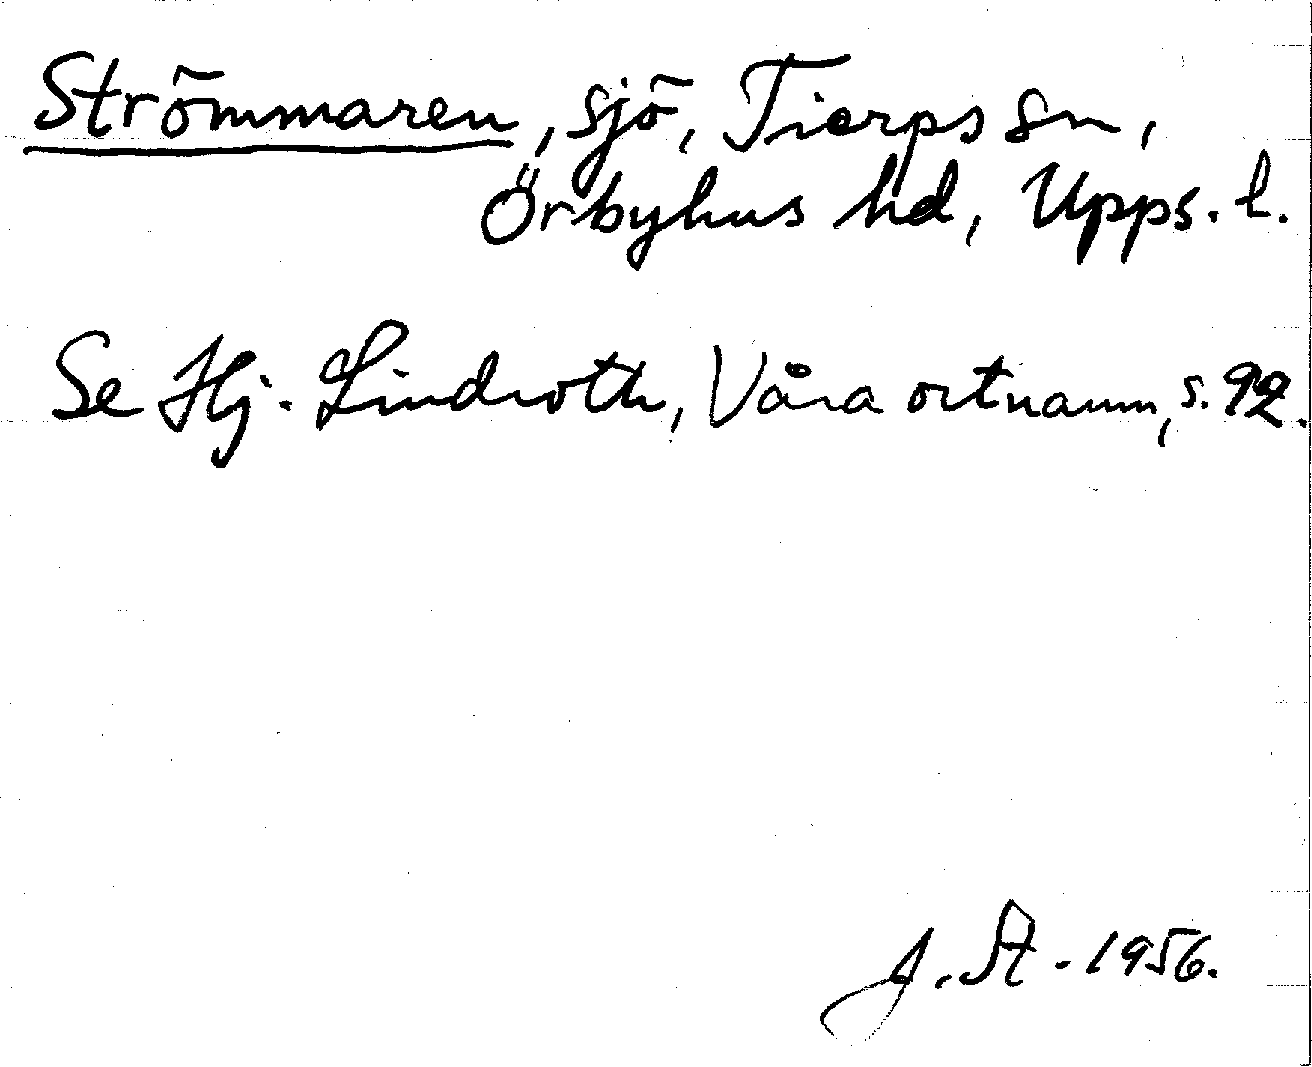 Strömmaren, sjö, Tierps sn,
Örbyhus hd, Upps. l.
Se Hj. Lindroth, Våra ortnamn, s. 92.
J. St. 1956.